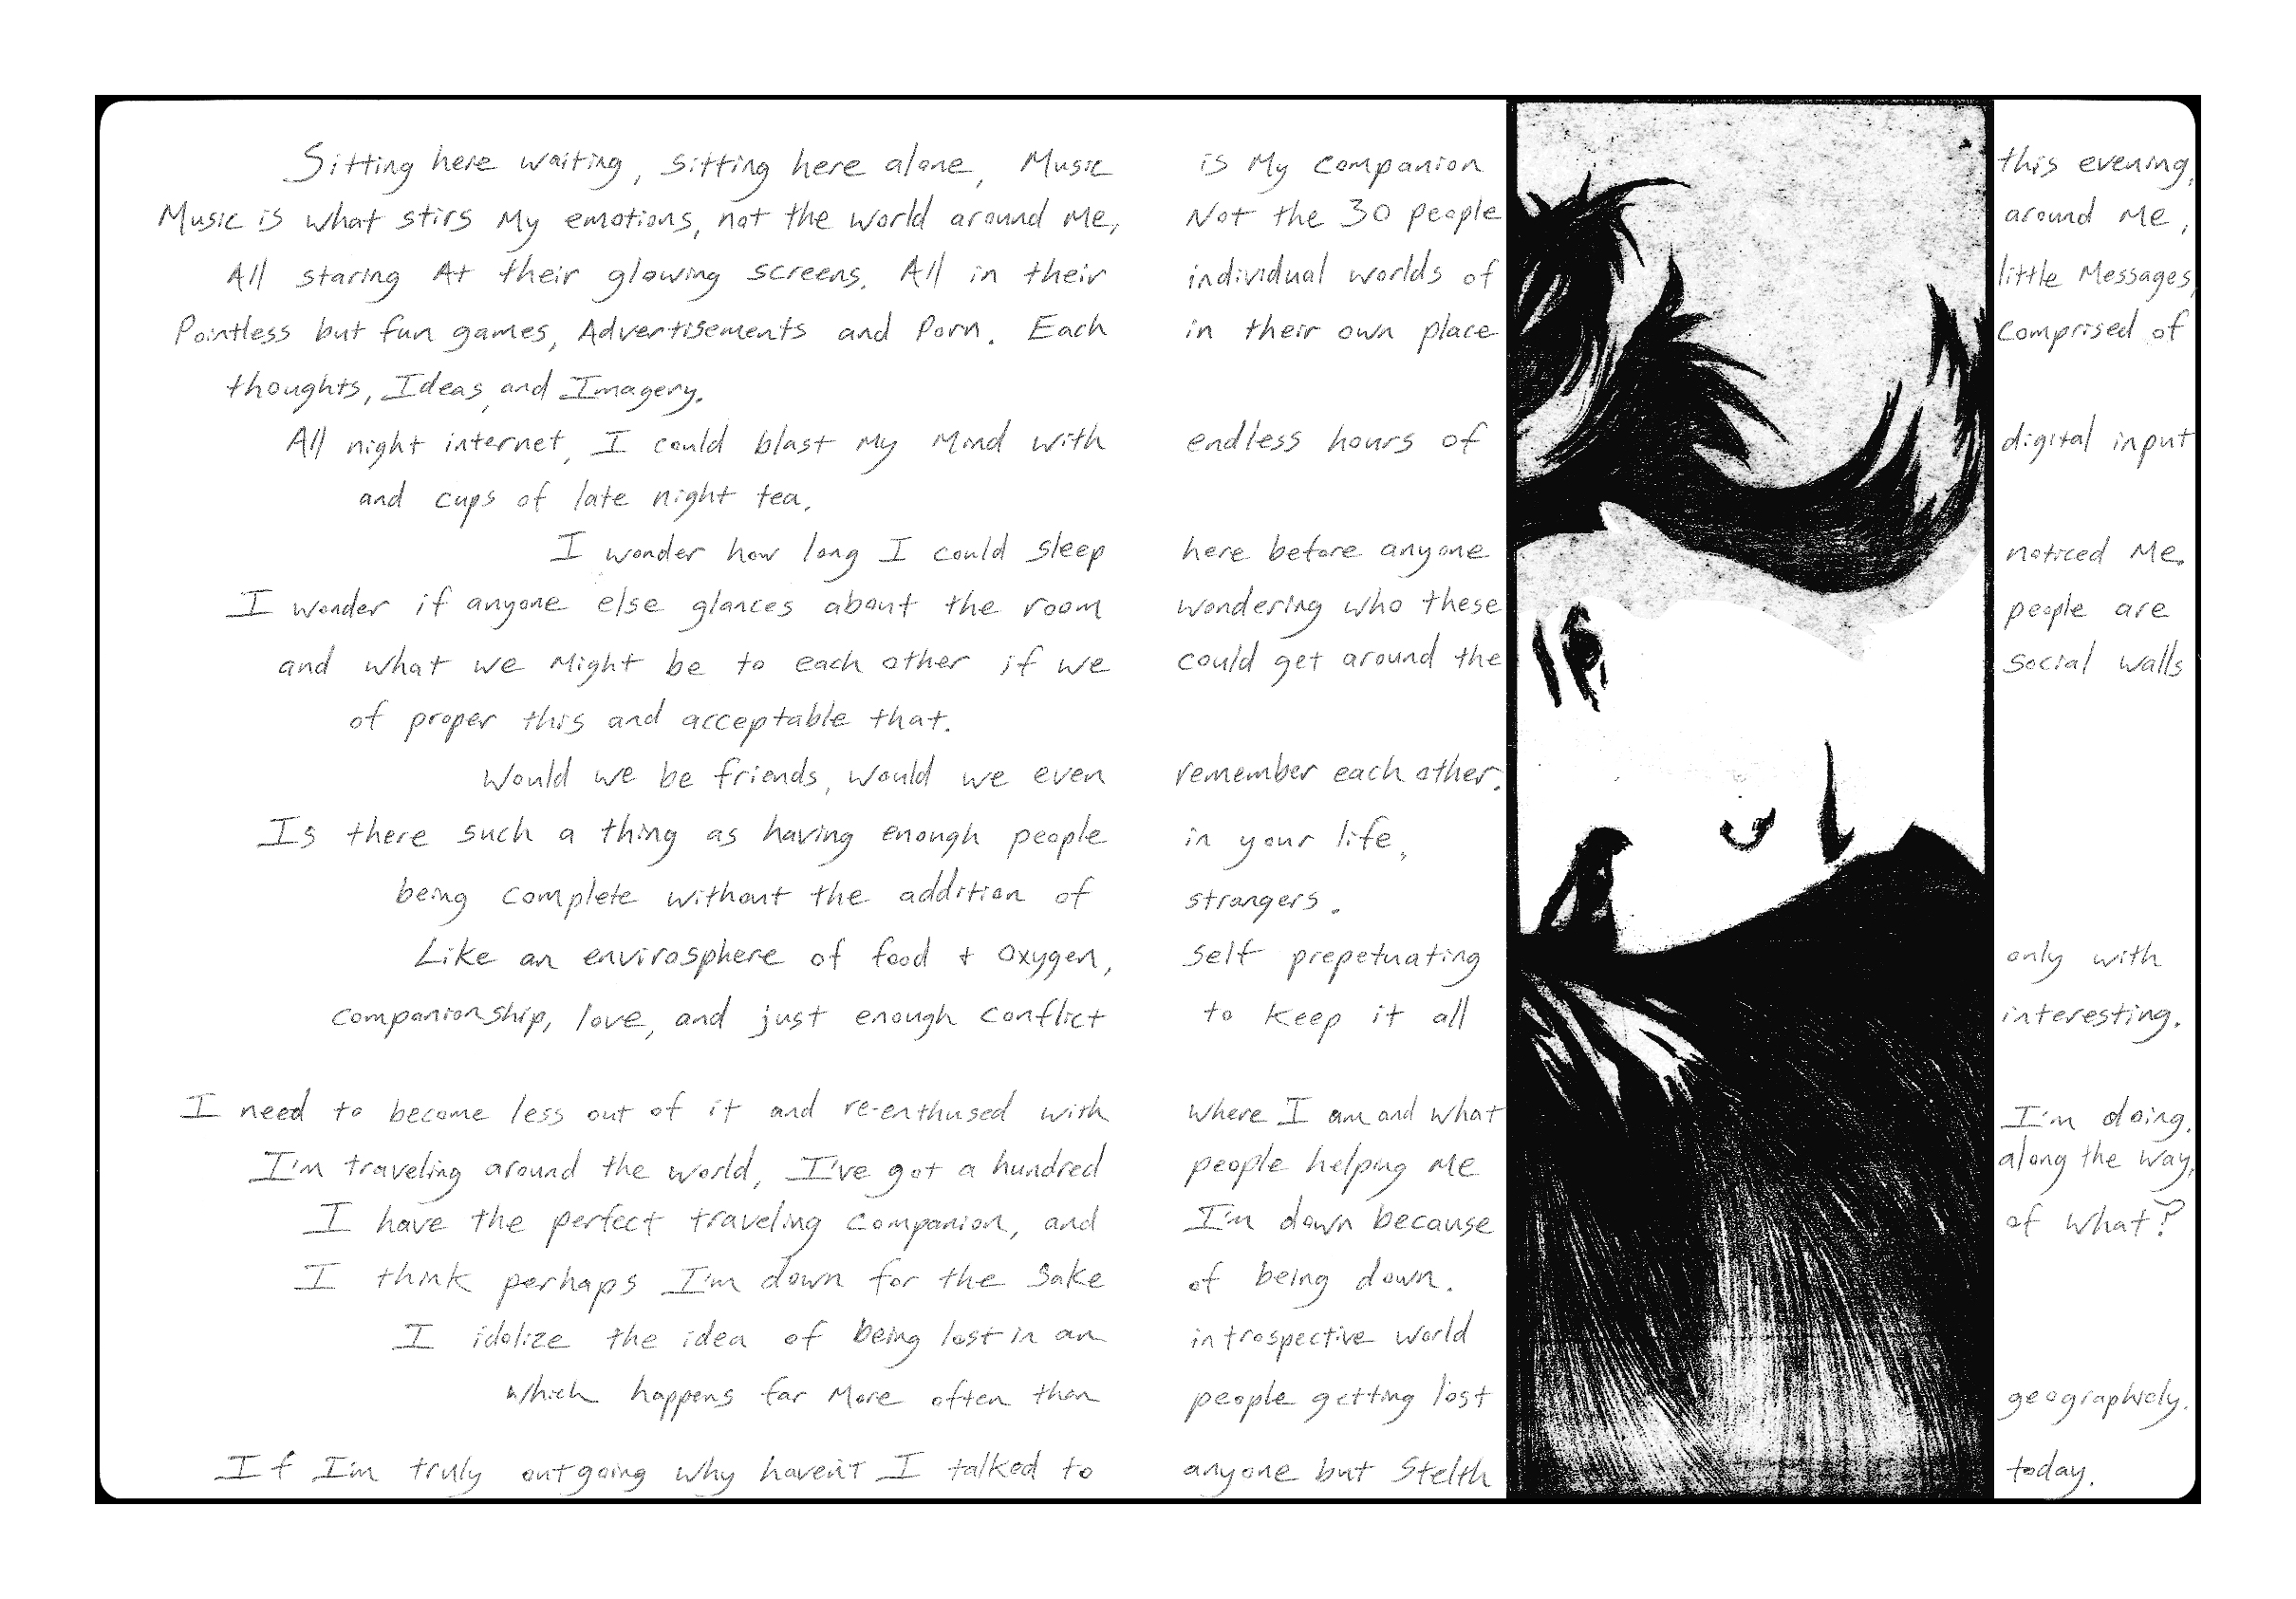 Sitting here waiting, sitting here alone, Music is My companion this evening,
Music is what stirs My emotions, not the world around Me, Not the 30 people around Me,
All staring At their glowing screens. All in their individual worlds of little Messages,
Pointless but fun games, Advertisements and Porn. Each in their own place comprised of
thoughts, Ideas, and Imagery.
All night internet, I could blast My Mind with endless hours of digital input
and cups of late night tea.
I wonder how long I could sleep here before anyone noticed Me.
I wonder if anyone else glances about the room wondering who these people are
and what we Might be to each other if we could get around the social walls
of proper this and acceptable that.
Would we be friends, would we even remember each other.
Is there such a thing as having enough people in your life,
being complete without the addition of strangers.
Like an envirosphere of food + Oxygen, self prepetuating only with
companionship, love, and just enough conflict to keep it all interesting.
I need to become less out of it and re-enthused with where I am and what I'm doing.
I'm traveling around the world, I've got a hundred people helping Me along the way,
I have the perfect traveling companion, and I'm down because of what?
I think perhaps I'm down for the sake of being down.
I idolize the idea of being lost in an introspective world
which happens far More often than people getting lost geographicly.
If I'm truly outgoing why haven't I talked to anyone but Stelth today.